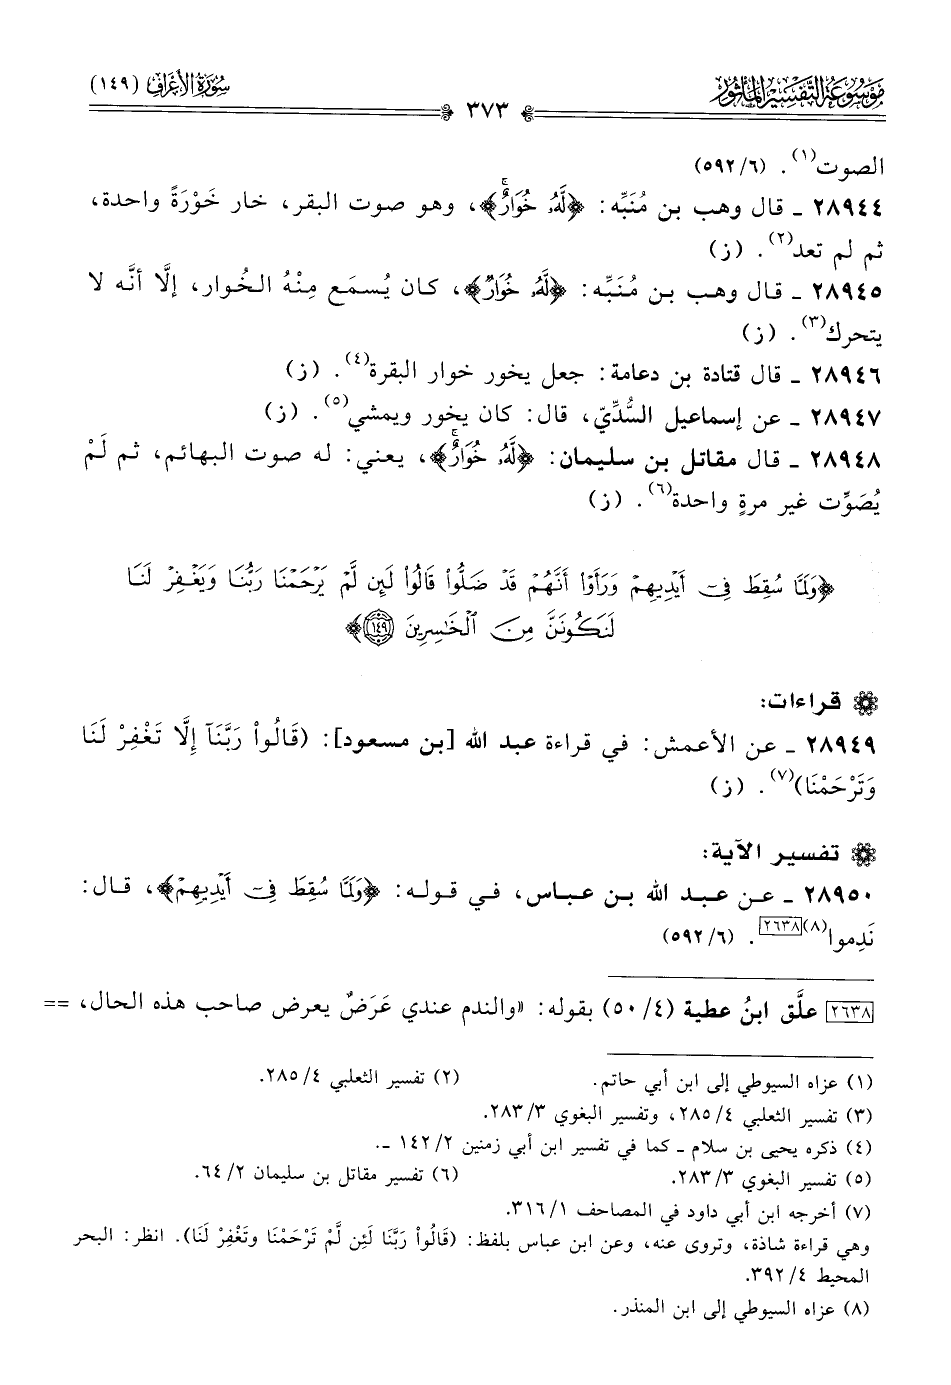 مَوْسُوعَةُ التَّفْسِيرِ المَأْثُور
سُورَةُ الأَعْرَافِ (١٤٩)
٣٧٣
الصوت(١). (٥٩٢/٦)
٢٨٩٤٤ ـ قال وهب بن مُنَبِّه: ﴿لَّهُۥ خُوَارٌۚ﴾، وهو صوت البقر، خار خَوْرَةً واحدة،
ثم لم تعد(٢). (ز)
٢٨٩٤٥ ـ قال وهب بن مُنَبِّه: ﴿لَّهُۥ خُوَارٌ﴾، كان يُسمَع مِنْهُ الخُوار، إلَّا أنَّه لا
يتحرك(٣). (ز)
٢٨٩٤٦ ـ قال قتادة بن دعامة: جعل يخور خوار البقرة(٤). (ز)
٢٨٩٤٧ ـ عن إسماعيل السُّدِّيّ، قال: كان يخور ويمشي(٥). (ز)
٢٨٩٤٨ ـ قال مقاتل بن سليمان: ﴿لَّهُۥ خُوَارٌۚ﴾، يعني: له صوت البهائم، ثم لَمْ
يُصَوِّت غير مرةٍ واحدة(٦). (ز)
﴿وَلَمَّا سُقِطَ فِىٓ أَيْدِيهِمْ وَرَأَوْا۟ أَنَّهُمْ قَدْ ضَلُّوا۟ قَالُوا۟ لَئِن لَّمْ يَرْحَمْنَا رَبُّنَا وَيَغْفِرْ لَنَا
لَنَكُونَنَّ مِنَ ٱلْخَٰسِرِينَ ١٤٩﴾
قراءات:
٢٨٩٤٩ ـ عن الأعمش: في قراءة عبد الله [بن مسعود]: (قَالُوا۟ رَبَّنَآ إِلَّا تَغْفِرْ لَنَا
وَتَرْحَمْنَا)(٧). (ز)
تفسير الآية:
٢٨٩٥٠ ـ عن عبد الله بن عباس، في قوله: ﴿وَلَمَّا سُقِطَ فِىٓ أَيْدِيهِمْ﴾، قال:
نَدِموا(٨)[٢٦٣٨]. (٥٩٢/٦)
[٢٦٣٨] علَّق ابنُ عطية (٥٠/٤) بقوله: «والندم عندي عَرَضٌ يعرض صاحب هذه الحال، ==
(١) عزاه السيوطي إلى ابن أبي حاتم. (٢) تفسير الثعلبي ٢٨٥/٤.
(٣) تفسير الثعلبي ٢٨٥/٤، وتفسير البغوي ٢٨٣/٣.
(٤) ذكره يحيى بن سلام ـ كما في تفسير ابن أبي زمنين ١٤٢/٢ ـ.
(٥) تفسير البغوي ٢٨٣/٣. (٦) تفسير مقاتل بن سليمان ٦٤/٢.
(٧) أخرجه ابن أبي داود في المصاحف ٣١٦/١.
وهي قراءة شاذة، وتروى عنه، وعن ابن عباس بلفظ: (قَالُوا رَبَّنَا لَئِن لَّمْ تَرْحَمْنَا وتَغْفِرْ لَنَا). انظر: البحر
المحيط ٣٩٢/٤.
(٨) عزاه السيوطي إلى ابن المنذر.